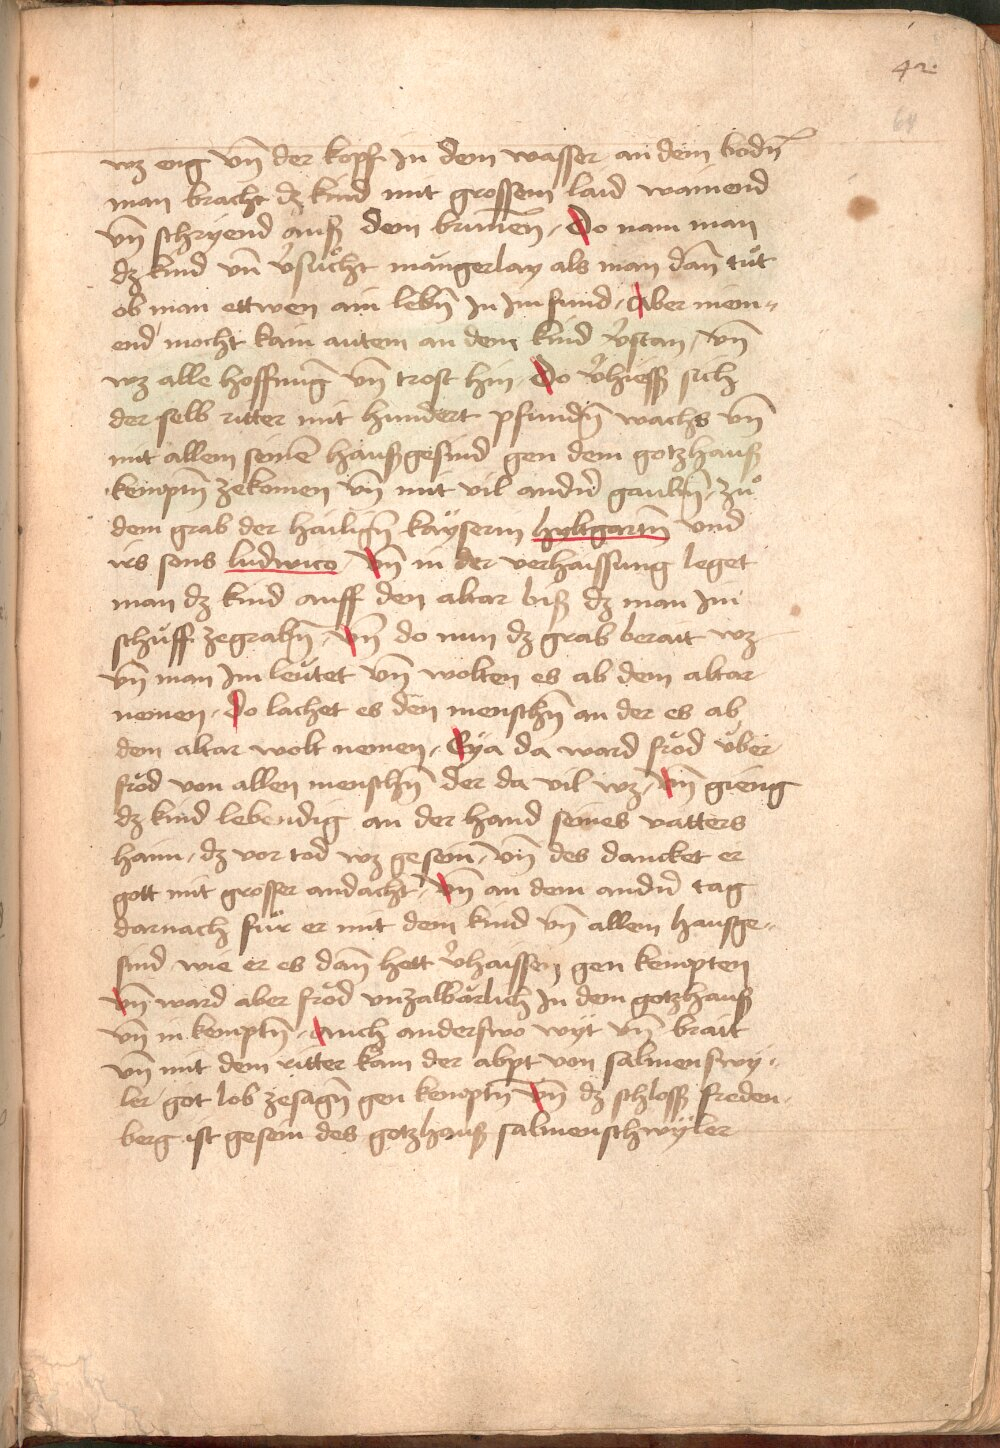 42.
64
wz eng vn̄ der kopff in dem wasser an dem bodn̄
man bracht dz kind mit grossem laid wainend
vn̄ schryend auß dem brunnen / Do nam man
dz kind vn̄ v̉sůcht mangerlay als man dan̄ tůt
ob man ettwen ain lebn̄ in im fund / Aber niem„
end mocht kain autem an dem kind v̉stan / vn̄
wz alle hoffnung vn̄ trost hin / Do v̉hiess sich
der selb ritter mit hundert pfundn̄ wachs vn̄
mit allem seinē haußgesind gen dem gotzhauß
kemptn̄ zekomen vn̄ mit vil andn̉ gaubn̄ / zů
dem grab der hailign̄ kayserin hyltgartn̄ vnd
irs sons ludwico / Vn̄ in der verhaissung leget
man dz kind auff den altar biß dz man im
schůff zegrabn̄ / vn̄ do nun dz grab berait wz
vn̄ man im leütet vn̄ wolten es ab dem altar
nemen / Do lachet es den menschn̄ an der es ab
dem altar wolt nemen / Eya da ward fröd über
fröd von allen menschn̄ der da vil wz / vn̄ gieng
dz kind lebendig an der hand seines vatters
haim / dz vor tod wz gesein / vn̄ des dancket er
gott mit grosser andacht / vn̄ an dem andn̉ tag
darnach fůr er mit dem kind vn̄ allem haußge„
sind wie er es dan̄ hett v̉haissen gen kempten
vn̄ ward aber fröd vnzalbärlich in dem gotzhauß
vn̄ in kemptn̄ / Auch anderswo wyt vn̄ brait
vn̄ mit dem ritter kam der abpt von salmenswy„
ler got lob zesagn̄ gen kemptn̄ Vn̄ dz schloss freden„
berg ist gesein des gotzhauß salmenschwyler